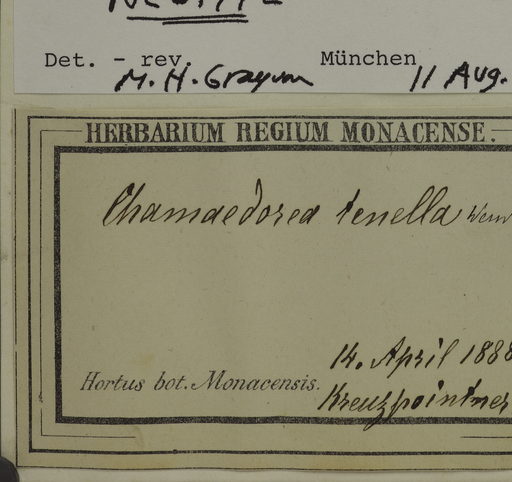 Det. - rev. München
M. H. Grayum 11 Aug.
HERBARIUM REGIUM MONACENSE.
Chamaedorea tenella Wen
14. April 1888
Hortus bot. Monacensis.
Kreuzpointner